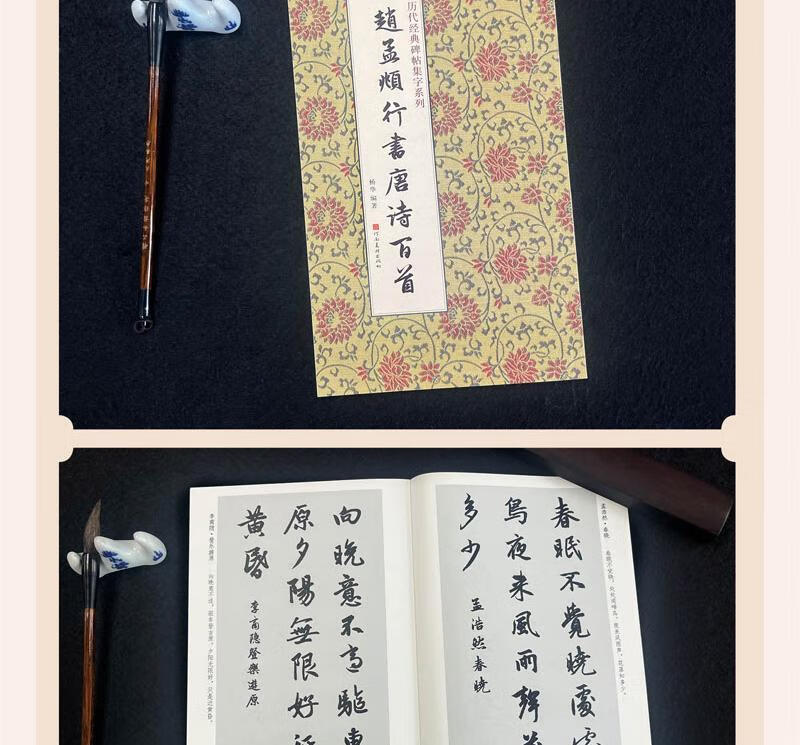 历代经典碑帖集字系列
趙孟頫行書唐诗百首
杨华 编著
河南美术出版社
孟浩然·春晓
春眠不觉晓，处处闻啼鸟。夜来风雨声，花落知多少。
春眠不覺曉處
鸟夜来風雨聲
多少
孟浩然春曉
李商隐·登乐游原
向晚意不适，驱车登古原。夕阳无限好，只是近黄昏。
向晚意不適驅車
原夕陽無限好
黄昏
李商隐登樂遊原